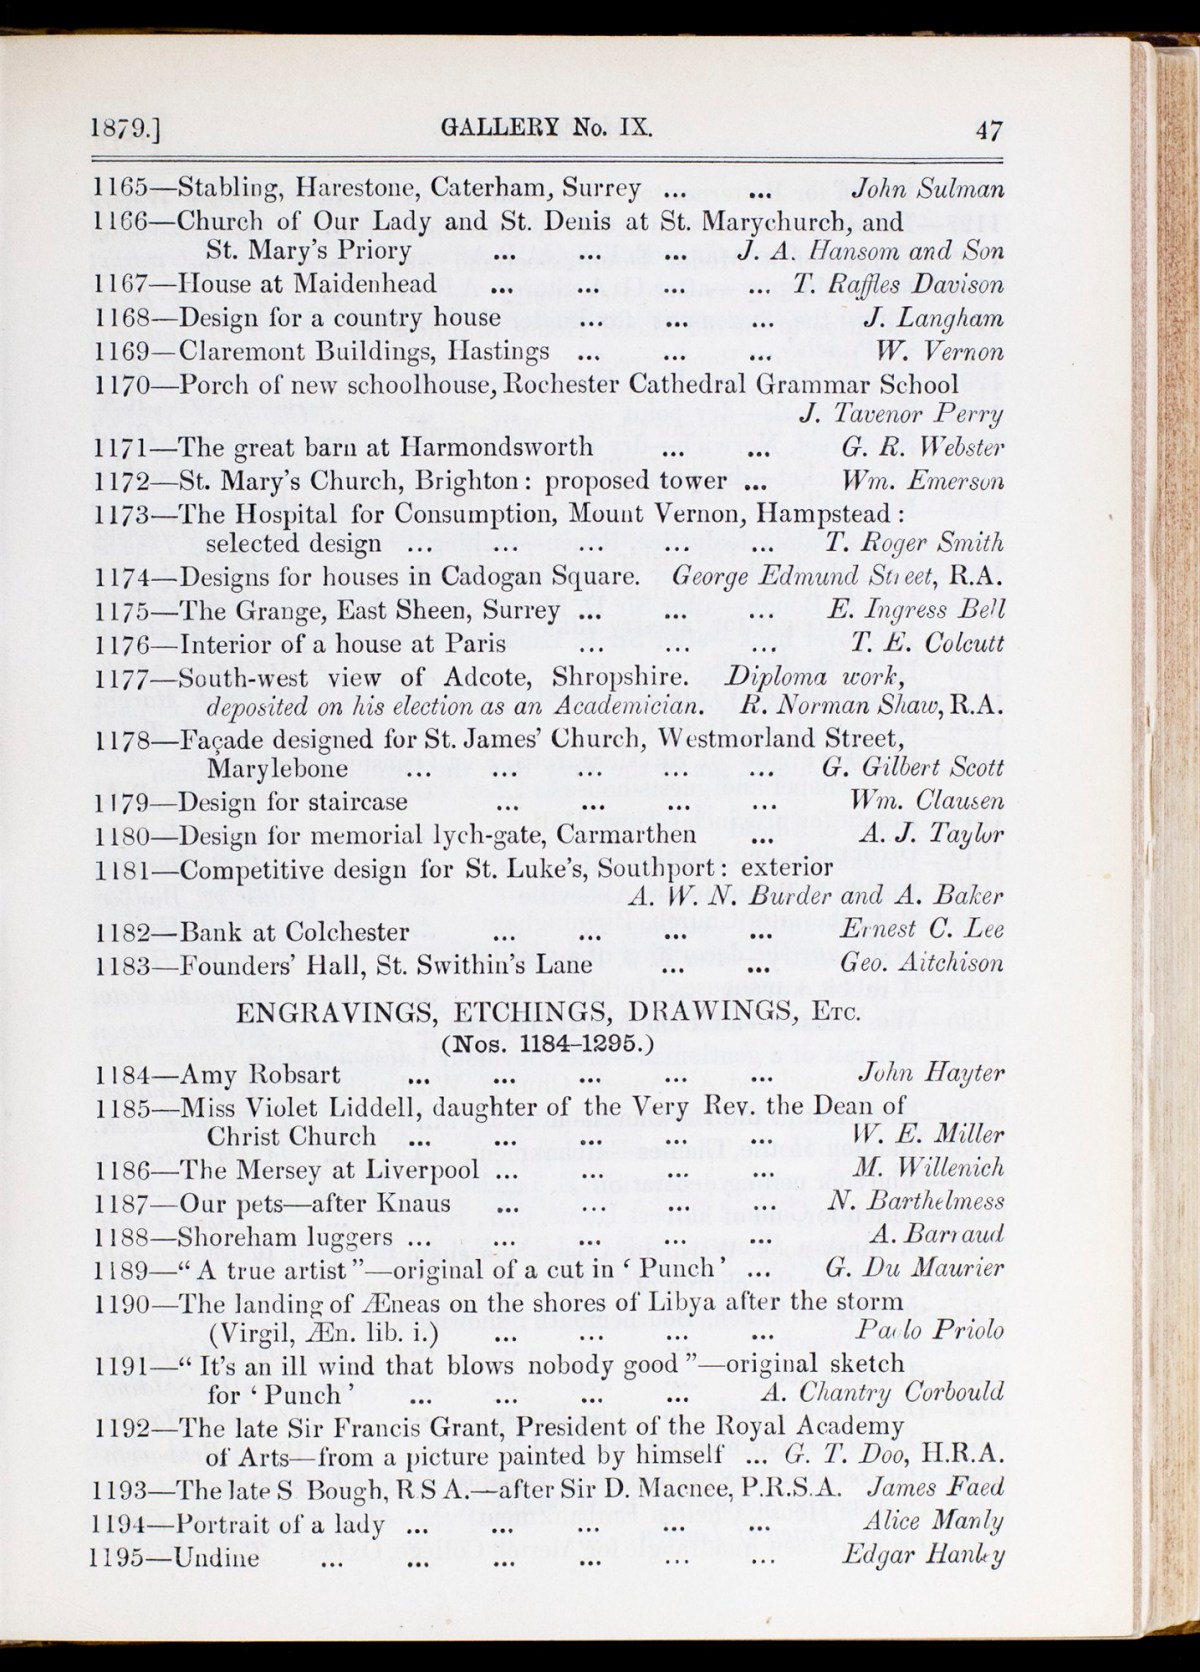 1879.] GALLERY No. IX. 47
1165—Stabling, Harestone, Caterham, Surrey ... ... John Sulman
1166—Church of Our Lady and St. Denis at St. Marychurch, and
St. Mary's Priory ... ... ... J. A. Hansom and Son
1167—House at Maidenhead ... ... ... ... T. Raffles Davison
1168—Design for a country house ... ... ... J. Langham
1169—Claremont Buildings, Hastings ... ... ... W. Vernon
1170—Porch of new schoolhouse, Rochester Cathedral Grammar School
J. Tavenor Perry
1171—The great barn at Harmondsworth ... ... G. R. Webster
1172—St. Mary's Church, Brighton: proposed tower ... Wm. Emerson
1173—The Hospital for Consumption, Mount Vernon, Hampstead:
selected design ... ... ... ... ... T. Roger Smith
1174—Designs for houses in Cadogan Square. George Edmund Street, R.A.
1175—The Grange, East Sheen, Surrey ... ... ... E. Ingress Bell
1176—Interior of a house at Paris ... ... ... T. E. Colcutt
1177—South-west view of Adcote, Shropshire. Diploma work,
deposited on his election as an Academician. R. Norman Shaw, R.A.
1178—Façade designed for St. James' Church, Westmorland Street,
Marylebone ... ... ... ... ... G. Gilbert Scott
1179—Design for staircase ... ... ... ... Wm. Clausen
1180—Design for memorial lych-gate, Carmarthen ... A. J. Taylor
1181—Competitive design for St. Luke's, Southport: exterior
A. W. N. Burder and A. Baker
1182—Bank at Colchester ... ... ... ... Ernest C. Lee
1183—Founders' Hall, St. Swithin's Lane ... ... Geo. Aitchison
ENGRAVINGS, ETCHINGS, DRAWINGS, Etc.
(Nos. 1184–1295.)
1184—Amy Robsart ... ... ... ... ... John Hayter
1185—Miss Violet Liddell, daughter of the Very Rev. the Dean of
Christ Church ... ... ... ... ... W. E. Miller
1186—The Mersey at Liverpool ... ... ... ... M. Willenich
1187—Our pets—after Knaus ... ... ... ... N. Barthelmess
1188—Shoreham luggers ... ... ... ... ... A. Barraud
1189—“A true artist”—original of a cut in ‘Punch’ ... G. Du Maurier
1190—The landing of Æneas on the shores of Libya after the storm
(Virgil, Æn. lib. i.) ... ... ... ... Paolo Priolo
1191—“It's an ill wind that blows nobody good”—original sketch
for ‘Punch’ ... ... ... ... A. Chantry Corbould
1192—The late Sir Francis Grant, President of the Royal Academy
of Arts—from a picture painted by himself ... G. T. Doo, H.R.A.
1193—The late S. Bough, R.S.A.—after Sir D. Macnee, P.R.S.A. James Faed
1194—Portrait of a lady ... ... ... ... ... Alice Manly
1195—Undine ... ... ... ... ... ... Edgar Hanley